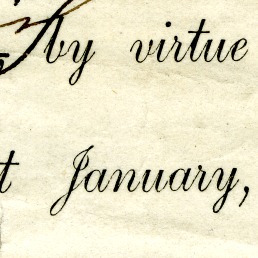 by virtue
t January,